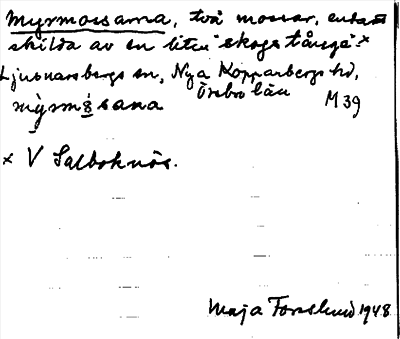 Myrmossarna, två mossar, endast
skilda av en liten "skogstånge" x
Ljusnarsbergs sn, Nya Kopparbergs hd,
Örebro län
mỳrmǻsana M 39
x V Salboknös.
Maja Forslund 1948